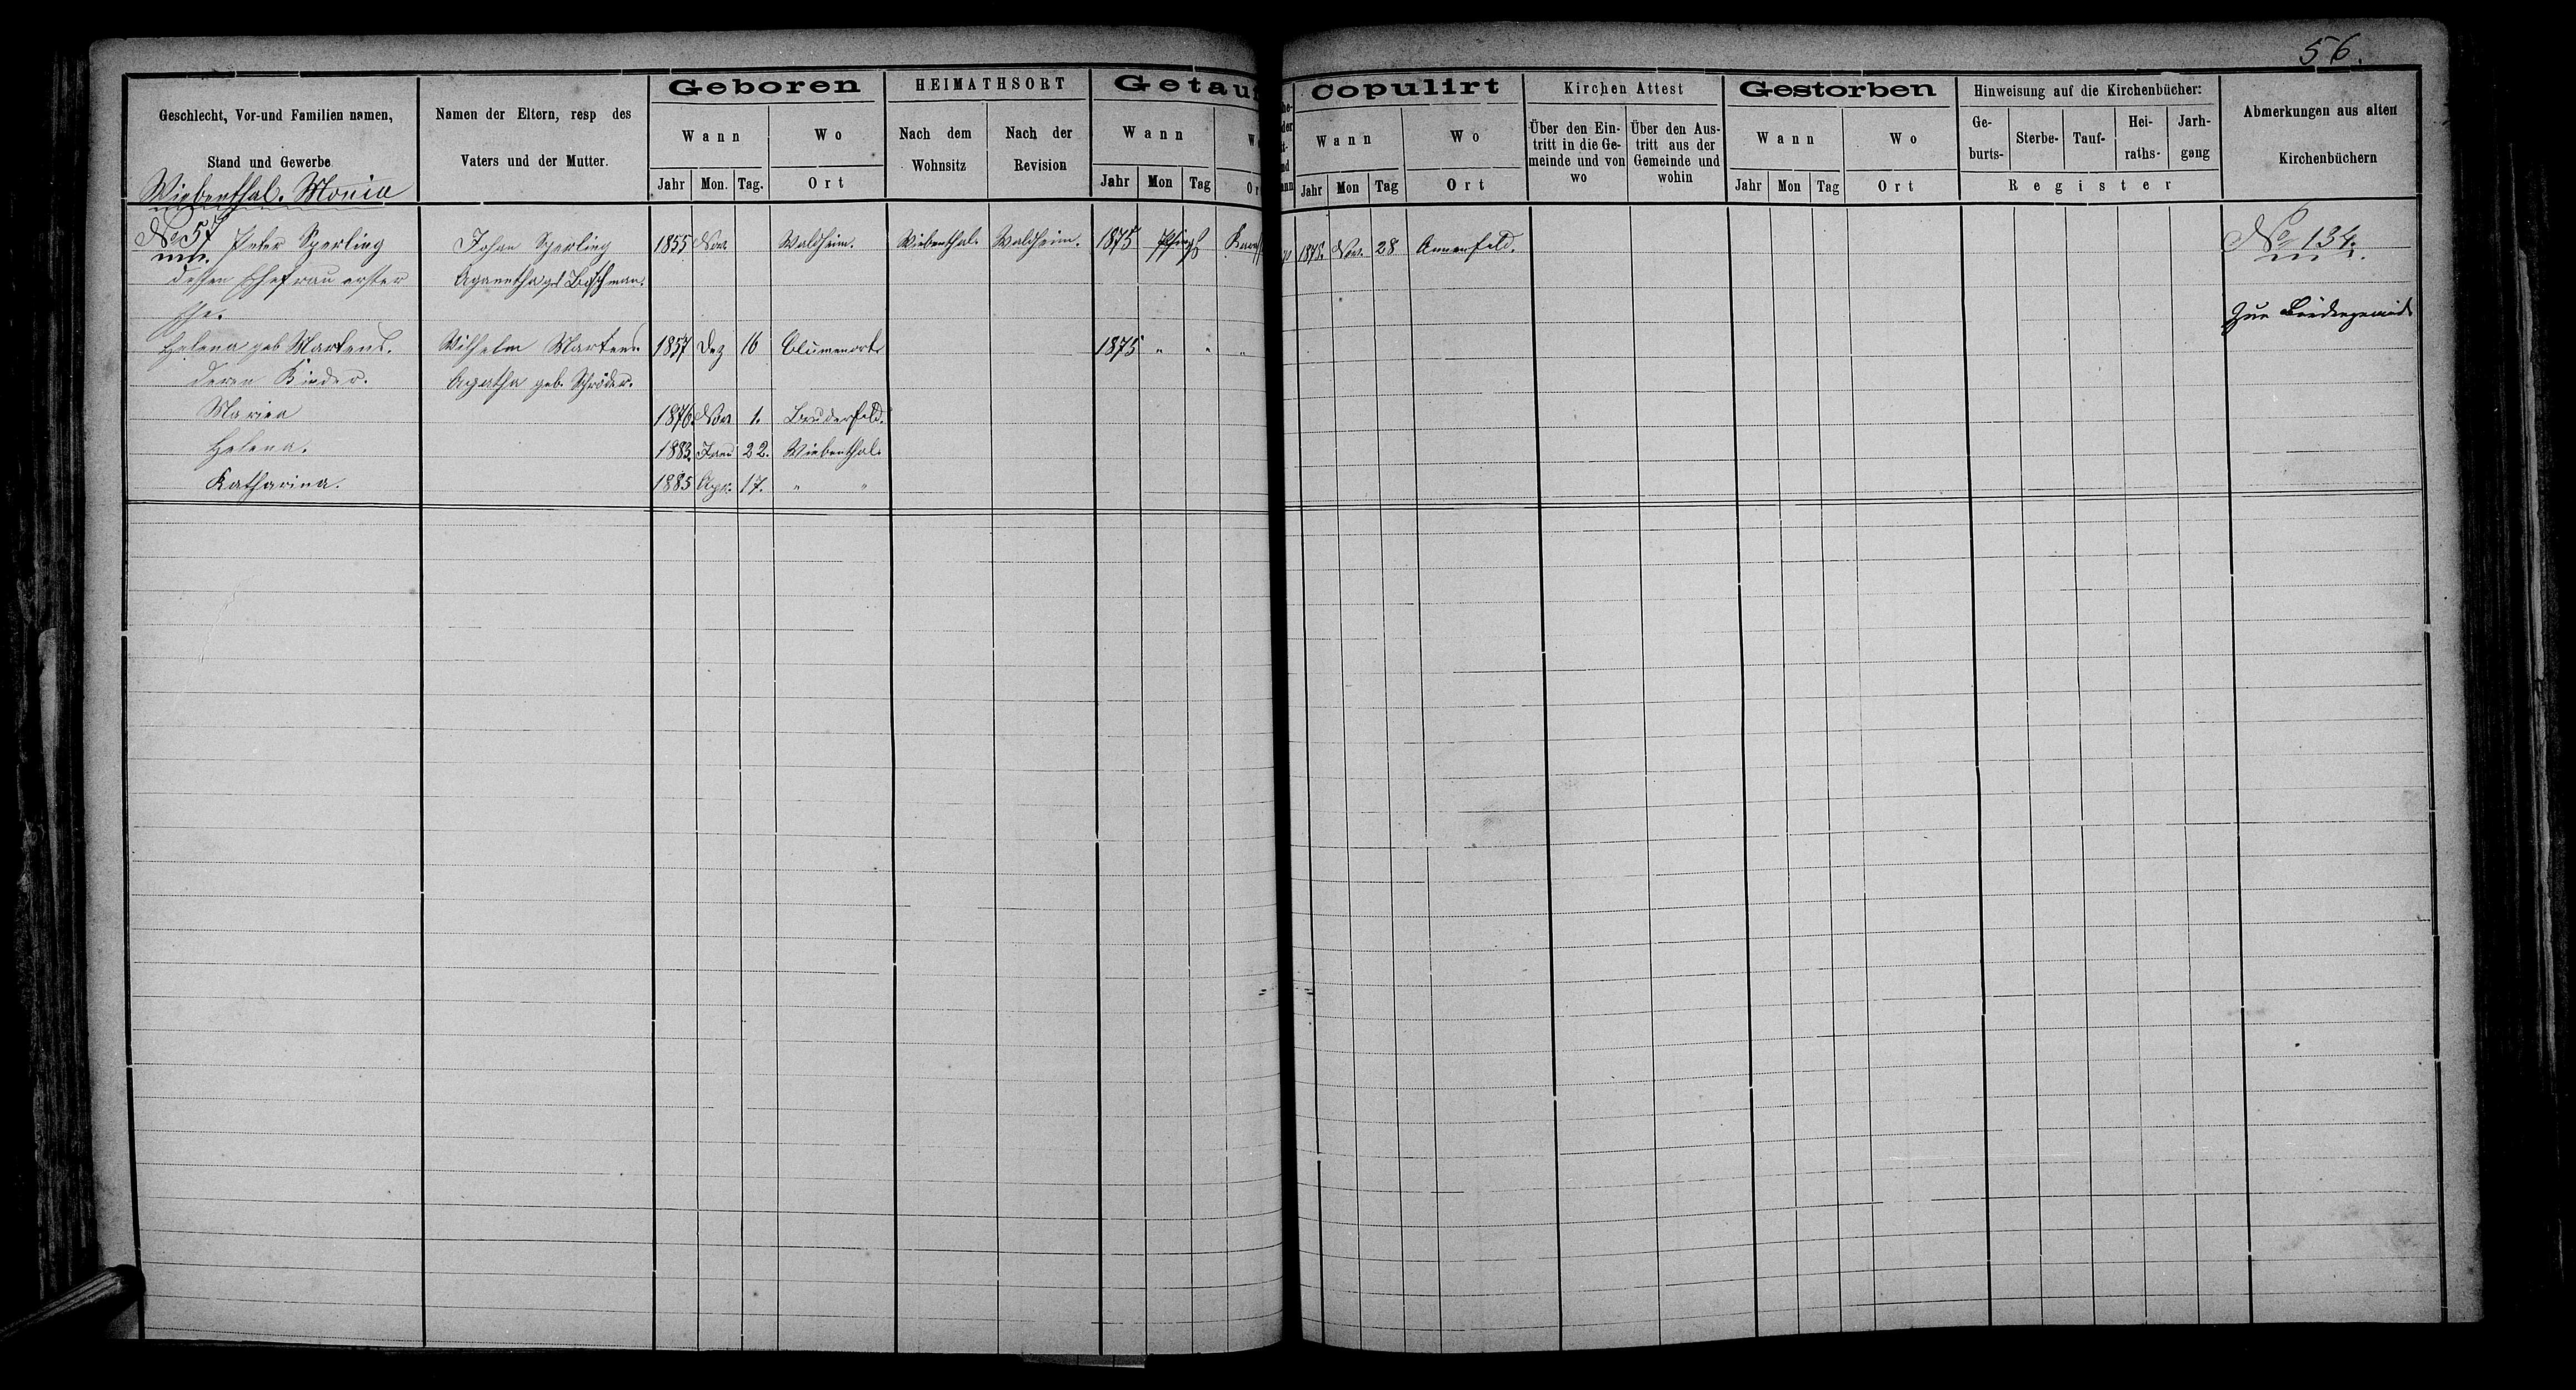 56.
Geschlecht, Vor-und Familien namen, Stand und Gewerbe
Namen der Eltern, resp des Vaters und der Mutter.
Geboren
Wann
Wo
Jahr Mon. Tag. Ort
HEIMATHSORT
Nach dem Wohnsitz
Nach der Revision
Getau
Wann
W
Jahr Mon Tag Or
Copulirt
Wann
Wo
Jahr Mon Tag Ort
Kirchen Attest
Über den Ein-tritt in die Ge-meinde und von wo
Über den Aus-tritt aus der Gemeinde und wohin
Gestorben
Wann
Wo
Jahr Mon Tag Ort
Hinweisung auf die Kirchenbücher:
Ge-burts- Sterbe- Tauf- Hei-raths- Jarh-gang
Register
Abmerkungen aus alten Kirchenbüchern
Wiebenthal. Monia
No 57 Peter Sperling Johan Sperling 1855 Nov. Waldheim. Wiebenthal. Waldheim. 1875 Pfingst 1875. Nov. 28 Annenfeld. No 134.
dessen Ehefrau erster Aganetha geb Buschman.
Ehe. Zur Brüdergemeinde
Helena geb Martens. Wilhelm Martens 1857 Dez 16 Blumenort 1875 " " "
deren Kinder. Agatha geb. Schröder.
Maria 1876. Nov 1. Bruderfeld.
Helena. 1883. Janu 22. Wiebenthal.
Katharina. 1885 Apr. 17. " "